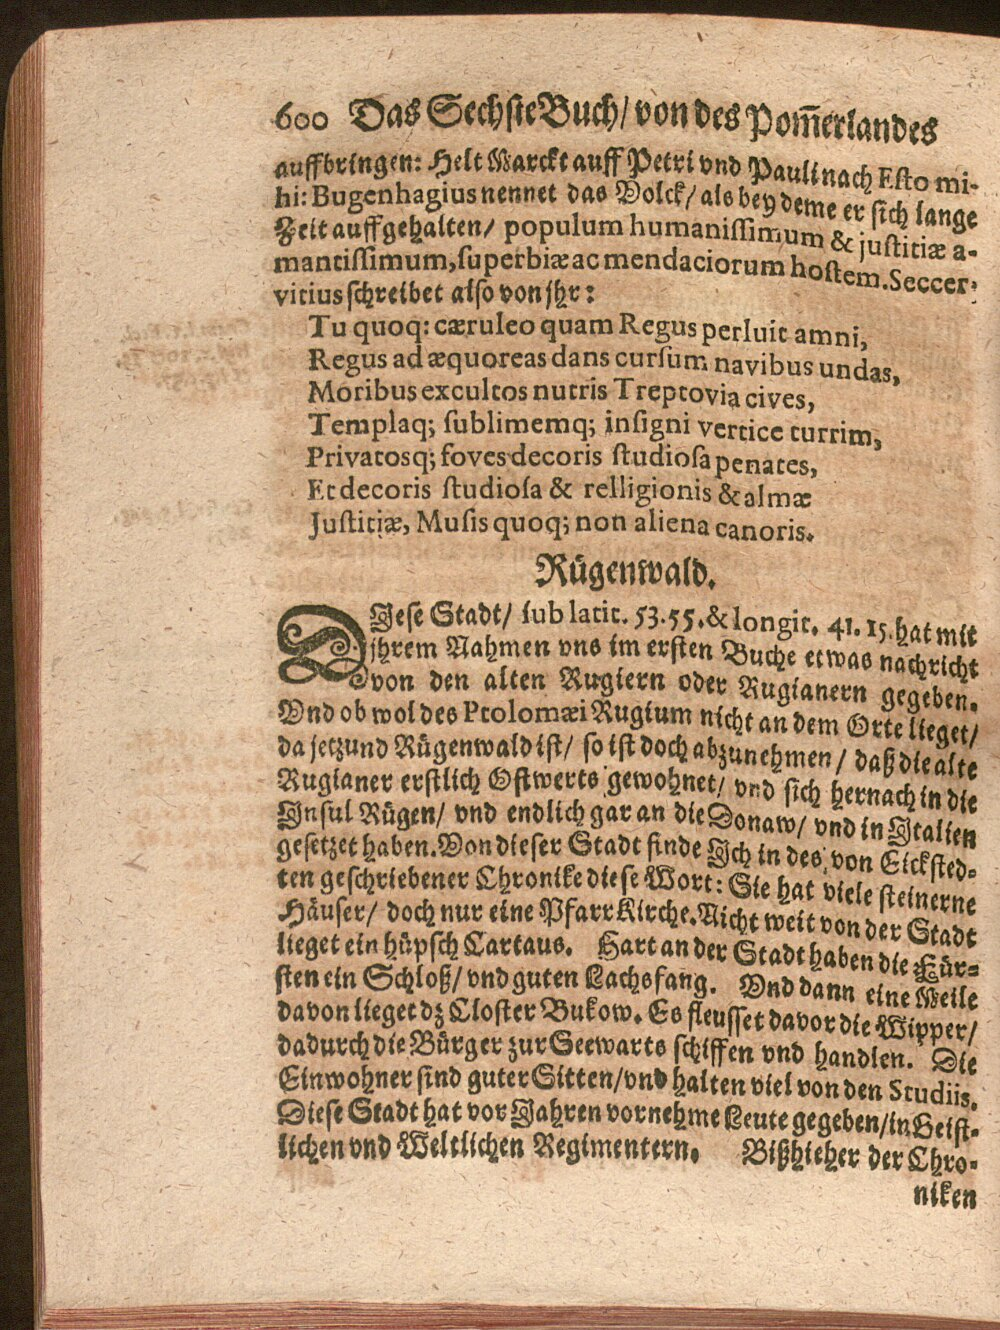 600 Das Sechste Buch/ von des Pom̃erlandes
auffbringen: Helt Marckt auff Petri vnd Pauli nach Esto mi-
hi: Bugenhagius nennet das Volck/ als bey deme er sich lange
Zeit auffgehalten/ populum humanissimum & justitiæ a-
mantissimum, superbiæ ac mendaciorum hostem. Seccer-
vitius schreibet also von jhr:
Tu quoq: cæruleo quam Regus perluit amni,
Regus ad æquoreas dans cursum navibus undas,
Moribus excultos nutris Treptovia cives,
Templaq; sublimemq; insigni vertice turrim,
Privatosq; foves decoris studiosa penates,
Et decoris studiosa & relligionis & almæ
Justitiæ, Musis quoq; non aliena canoris.
Rügenwald.
DJese Stadt/ sub latit. 53.55. & longit. 41. 15. hat mit
jhrem Nahmen vns im ersten Buche etwas nachricht
von den alten Rugiern oder Rugianern gegeben.
Vnd ob wol des Ptolomæi Rugium nicht an dem Orte lieget/
da jetzund Rügenwald ist/ so ist doch abzunehmen/ daß die alte
Rugianer erstlich Ostwerts gewohnet/ vnd sich hernach in die
Jnsul Rügen/ vnd endlich gar an die Donaw/ vnd in Jtalien
gesetzet haben. Von dieser Stadt finde Jch in des von Eicksted-
ten geschriebener Chronike diese Wort: Sie hat viele steinerne
Häuser/ doch nur eine PfarrKirche. Nicht weit von der Stadt
lieget ein hüpsch Cartaus. Hart an der Stadt haben die Für-
sten ein Schloß/ vnd guten Lachsfang. Vnd dann eine Meile
davon lieget dz Closter Bukow. Es fleusset davor die Wipper/
dadurch die Bürger zur Seewarts schiffen vnd handlen. Die
Einwohner sind guter Sitten/ vnd halten viel von den Studiis.
Diese Stadt hat vor Jahren vornehme Leute gegeben/ in Geist-
lichen vnd Weltlichen Regimentern. Bißhieher der Chro-
niken